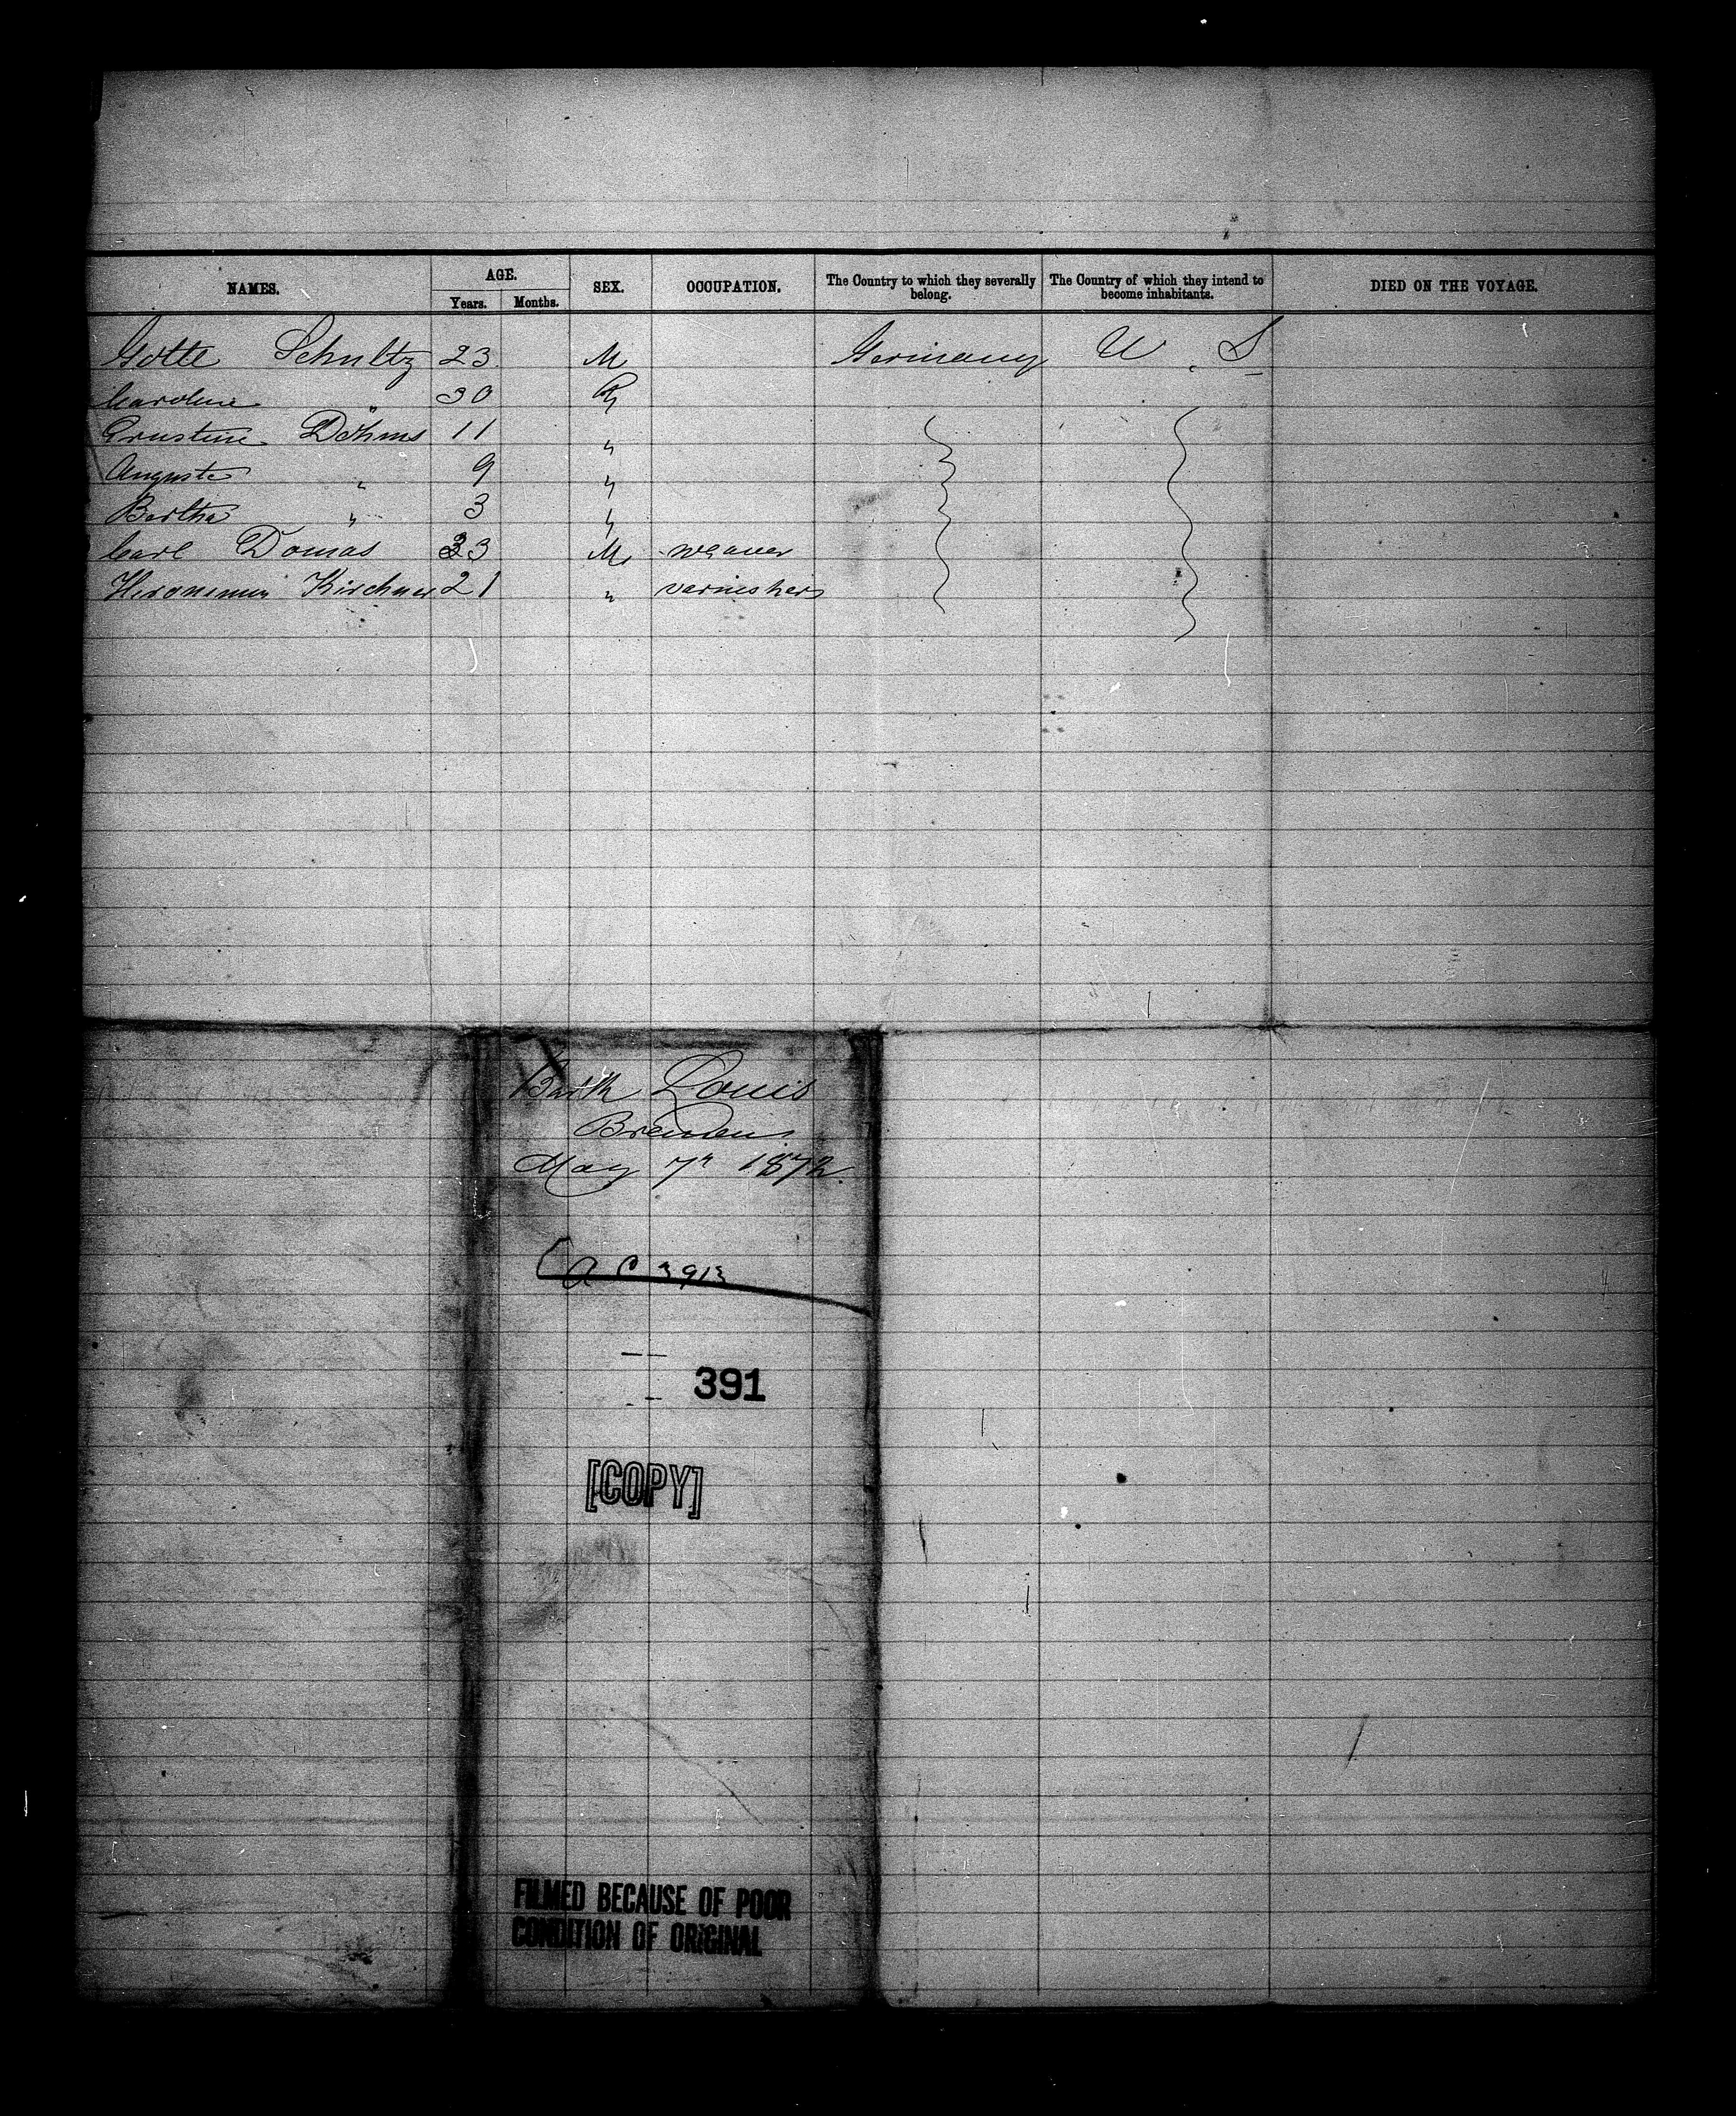 NAMES. AGE. SEX. OCCUPATION. The Country to which they severally belong. The Country of which they intend to become inhabitants. DIED ON THE VOYAGE.
Years. Months.
Gotte Schultz 23 M Germany U. S
Caroline " 30
Ernstine Döhms 11 "
Auguste " 9 "
Bertha " 3 "
Carl Domas 33 M weaver
Kirchner 21 " varnishers
Bark Louis
Bremen
May 7" 1872.
391
[COPY]
FILMED BECAUSE OF POOR
CONDITION OF ORIGINAL